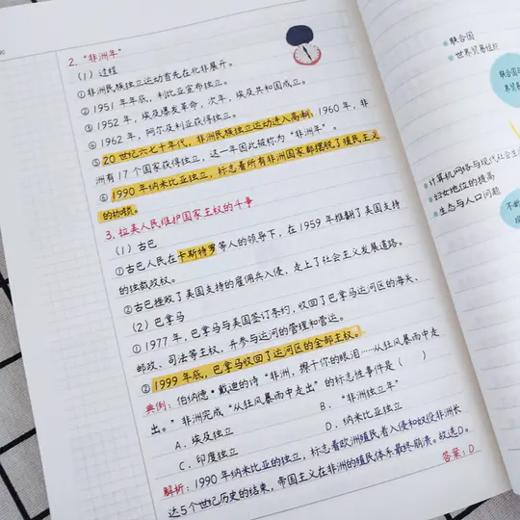 2. "非洲年"
(1) 过程
①非洲民族独立运动首先在北非展开。
②1951年年底,利比亚宣布独立。
③1952年,埃及爆发革命,次年,埃及共和国成立。
④1962年,阿尔及利亚获得独立。
⑤20世纪六七十年代,非洲民族独立运动进入高潮,1960年,非
洲有17个国家获得独立,这一年因此被称为"非洲年"。
⑥1990年纳米比亚独立,标志着所有非洲国家都摆脱了殖民主义
的枷锁。
3. 拉美人民维护国家主权的斗争
(1) 古巴
①古巴人民在卡斯特罗等人的领导下,在1959年推翻了美国支持
的独裁政权。
②古巴挫败了美国支持的雇佣兵入侵,走上了社会主义发展道路。
(2) 巴拿马
①1977年,巴拿马与美国签订条约,收回了巴拿马运河区的海关、
邮政、司法等主权,并参与运河的管理和营运。
②1999年底,巴拿马收回了运河区的全部主权。
典例:伯纳德·戴迪的诗"非洲,擦干你的眼泪……从狂风暴雨中走
出。"非洲完成"从狂风暴雨中走出"的标志性事件是( )
A. 埃及独立 B. "非洲独立年"
C. 印度独立 D. 纳米比亚独立
解析:1990年纳米比亚的独立,标志着欧洲殖民者入侵和奴役非洲长
达5个世纪历史的结束,帝国主义在非洲的殖民体系最终崩溃。故选D。
答案:D
联合国
世界贸易组织
联合国
界贸易
计算机网络与现代社会
妇女地位的提高
生态与人口问题
不断